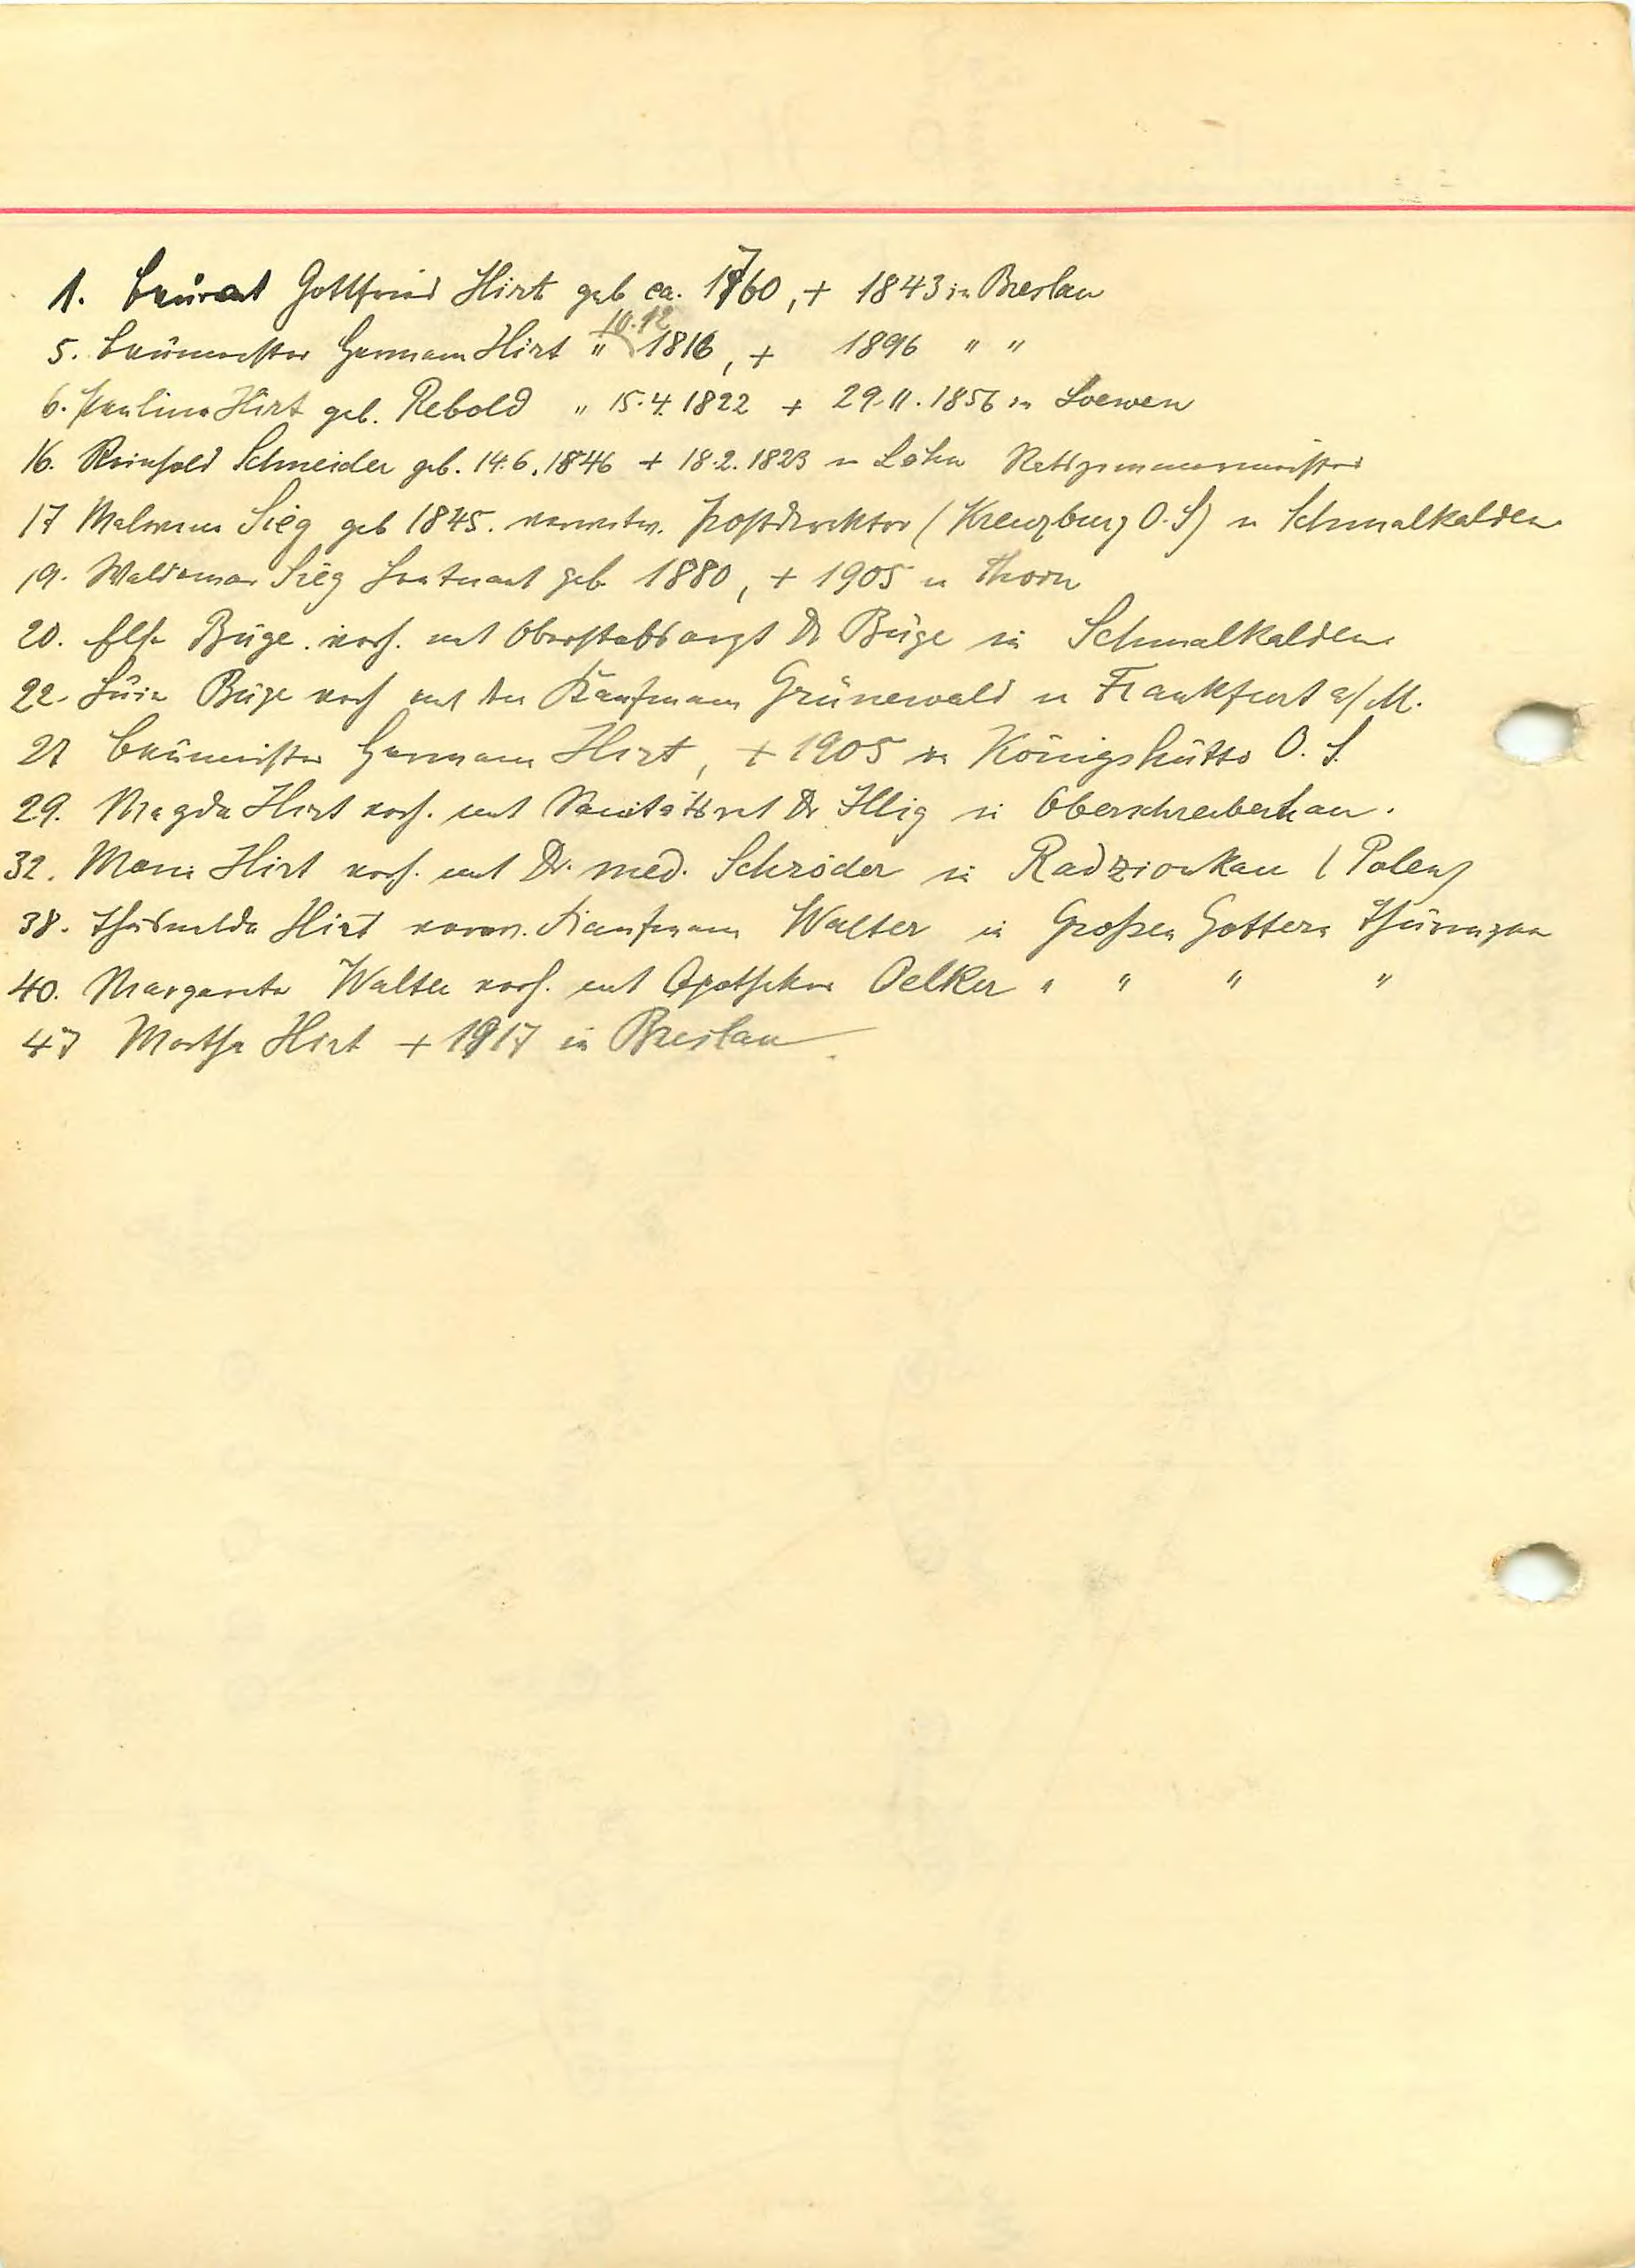 1. Baurat Gottfried Hirt geb ca. 1760, + 1843 in Breslau
10.12
5. Baumeister Hermann Hirt " 1816, + 1896 " "
6. Pauline Hirt geb. Rebold " 15.4.1822 + 29.11.1856 in Loewen
16. Reinhold Schneider geb. 14.6.1846 + 18.2.1823 in Lähn Ratszimmermeister
17 Malwine Sieg geb 1845. verwitw. Postdirektor (Kreuzburg O.S) in Schmalkalden
19. Waldemar Sieg Leutnant geb 1880, + 1905 in Thorn
20. Else Büge. verh. mit Oberstabsarzt Dr Büge in Schmalkalden
22. Büge verh mit dem Kaufmann Grünewald in Frankfurt a/M.
Baumeister Hermann Hirt, + 1905 in Königshütte O. S.
29. Magda Hirt verh. mit Sanitätsrat Dr Illig in Oberschreiberhau.
32. Hirt verh. mit Dr. med. Schröder in Radzionkau (Polen)
38. Thusnelda Hirt verw. Kaufmann Walter in Großen Gottern Thüringen
40. Margarete Walter verh. mit Apotheker Oelker " " " "
47 Martha Hirt + 1917 in Breslau